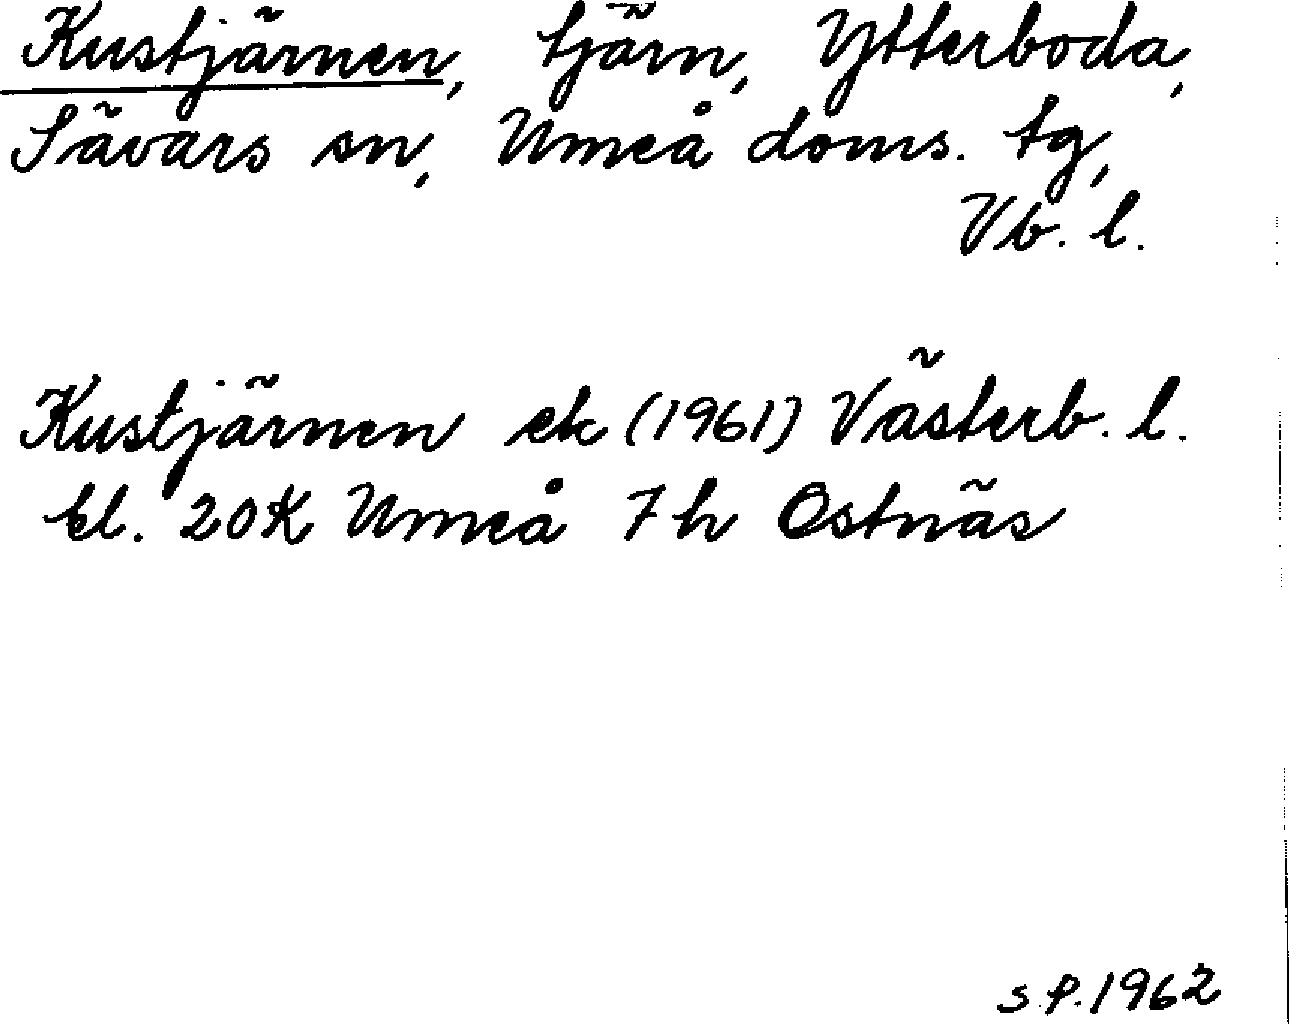 Kustjärnen, tjärn, Ytterboda,
Sävars sn, Umeå doms. tg,
Vb. l.
Kustjärnen ek (1961) Västerb. l.
bl. 20K Umeå 7h Ostnäs
S.P. 1962